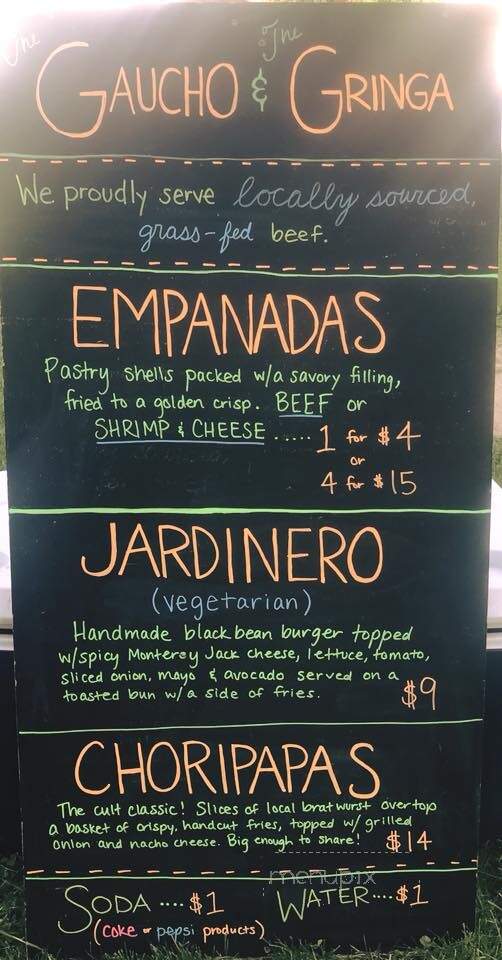 The The
GAUCHO & GRINGA
We proudly serve locally sourced,
grass-fed beef.
EMPANADAS
Pastry shells packed w/a savory filling,
fried to a golden crisp. BEEF or
SHRIMP & CHEESE ..... 1 for $4
or
4 for $15
JARDINERO
(vegetarian)
Handmade black bean burger topped
w/spicy Monterey Jack cheese, lettuce, tomato,
sliced onion, mayo & avocado served on a
toasted bun w/a side of fries. $9
CHORIPAPAS
The cult classic! Slices of local bratwurst overtop
a basket of crispy, handcut fries, topped w/ grilled
onion and nacho cheese. Big enough to share! $14
menupix
SODA .... $1 WATER .... $1
(coke or pepsi products)